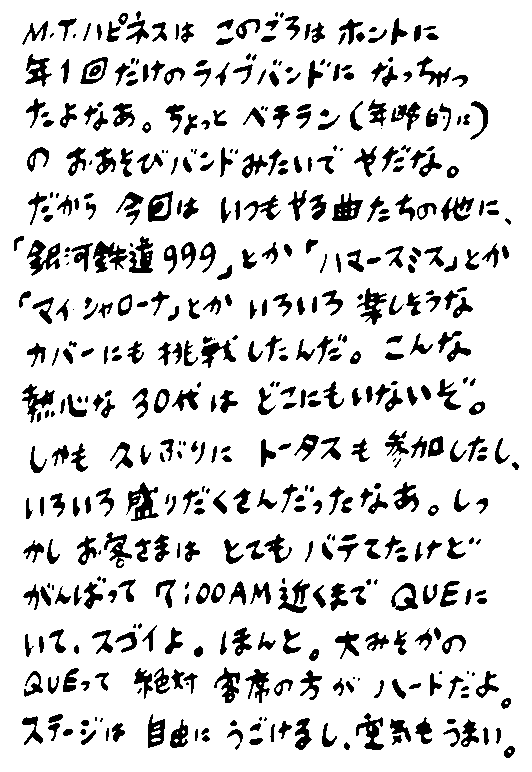 M.T.ハピネスは このごろは ホントに
年1回だけのライブバンドに なっちゃっ
たよなあ。ちょっと ベテラン(年齢的に)
の おあそびバンドみたいで やだな。
だから 今回は いつもやる曲たちの他に、
「銀河鉄道999」とか「ハマースミス」とか
「マイ・シャローナ」とか いろいろ 楽しそうな
カバーにも 挑戦したんだ。こんな
熱心な 30代は どこにもいないぞ。
しかも 久しぶりに トータスも 参加したし、
いろいろ盛りだくさんだったなあ。しっ
かし お客さまは とても バテてたけど
がんばって 7:00AM近くまで QUEに
いて、スゴイよ。ほんと。大みそかの
QUEって 絶対 客席の方が ハードだよ。
ステージは 自由に うごけるし、空気もうまい。